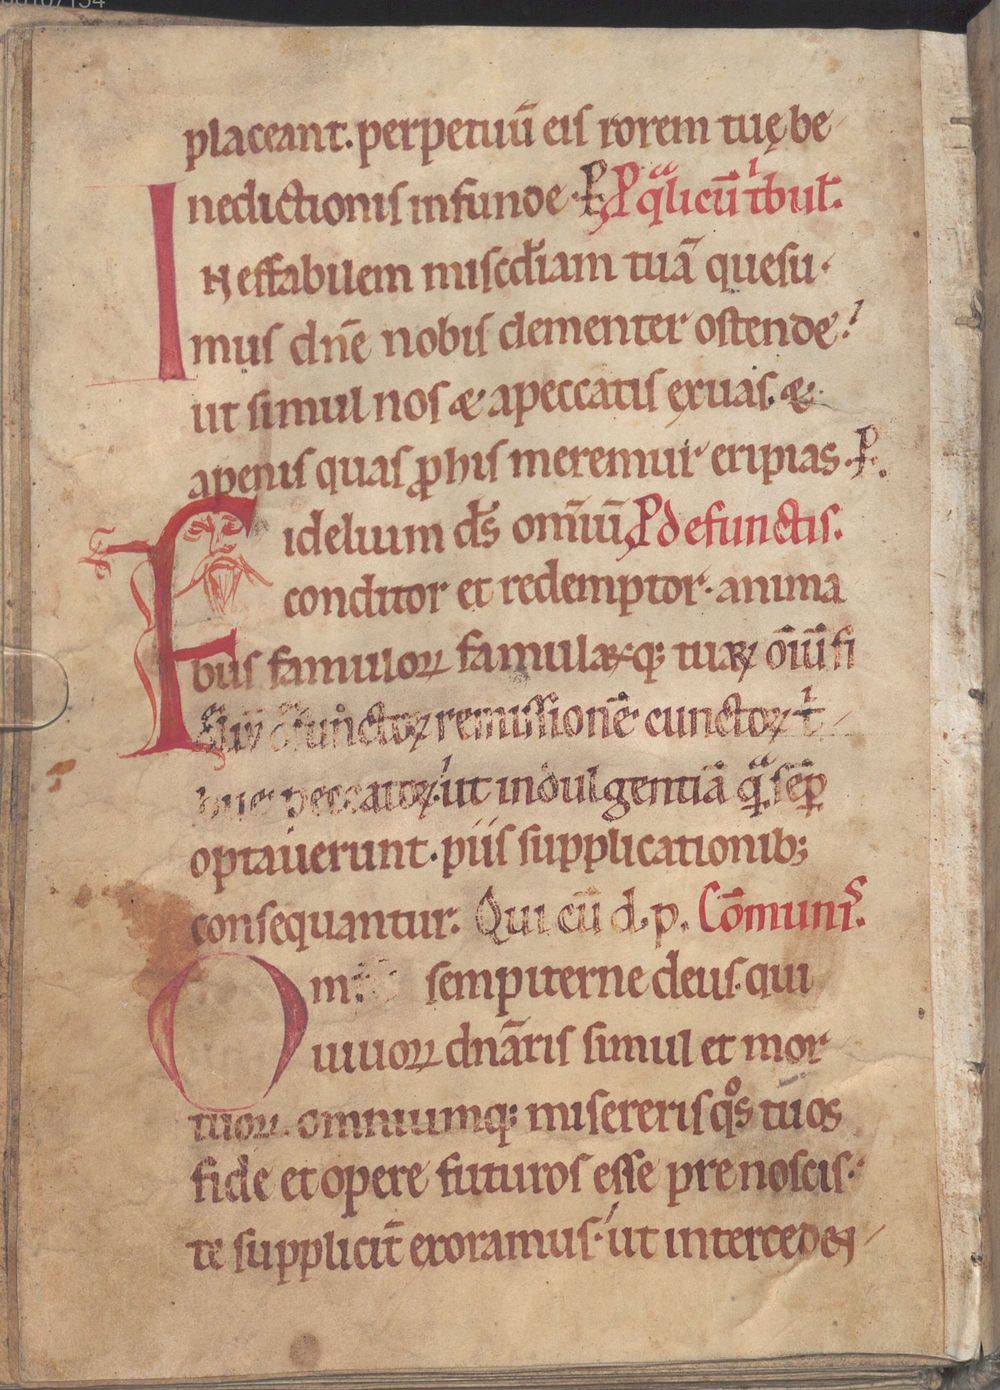 placeant. perpetuū eis rorem tuę be
nedictionis infunde. P̄ P̄ qͣlicū tͥbul̄.
INeffabilem misc̄diam tuā quesu
mus dn̄e nobis clementer ostende.
ut simul nos & apeccatis exuas. &
apenis quas ꝓhis meremur eripias. P̄.
Fidelium ds̄ omīū P̄ defunctis.
conditor et redemptor. anima
bus famuloꝝ famulaꝝq; tuaꝝ oīū fi
defunctoꝝ remissionē cunctoꝝ tͥ
bue peccatoꝝ. ut indulgentiā qͣ̄ sēp̄
optauerunt. piis supplicationib;
consequantur. Qui cū d. p. Cōmunis.
Om sempiterne deus. qui
uiuoꝝ dnāris simul et mor
tuoꝝ. omniumq; misereris qͦs tuos
fide et opere futuros esse prenoscis.
te supplicit̄ exoramus. ut interceden